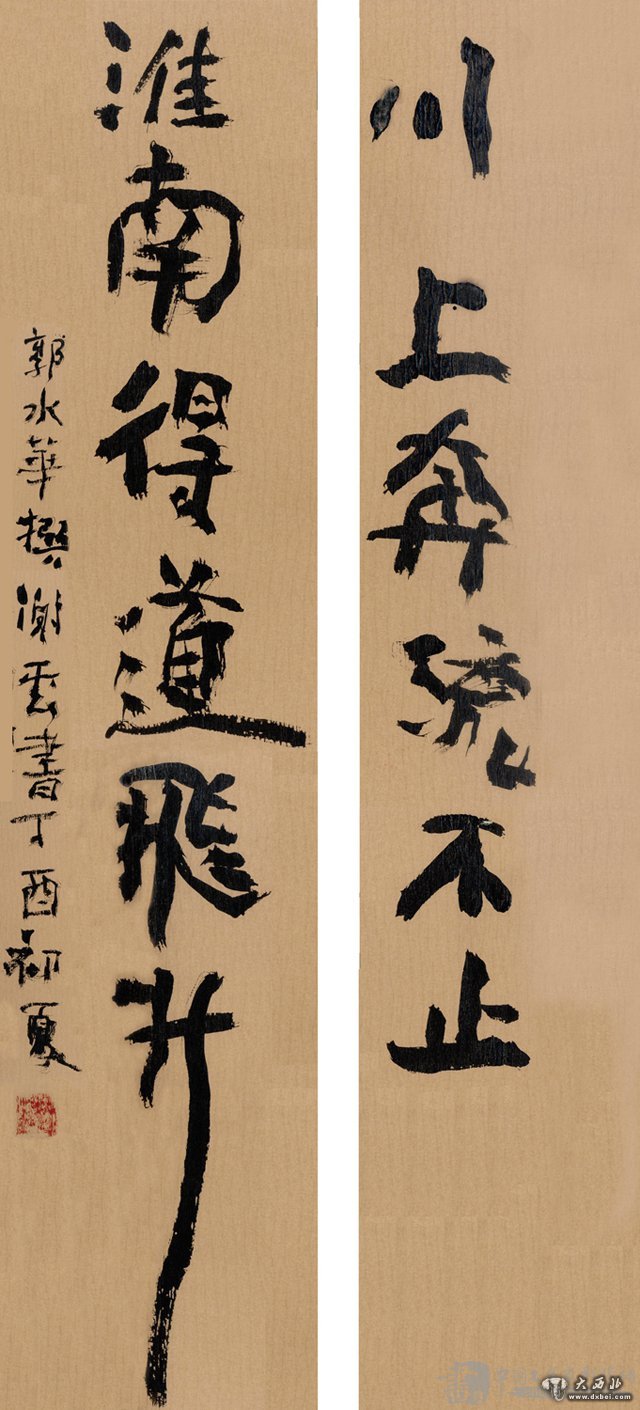 川上奔流不止
淮南得道飛升
郭水華撰谢雲書丁酉初夏
大西北
www.dxbei.com